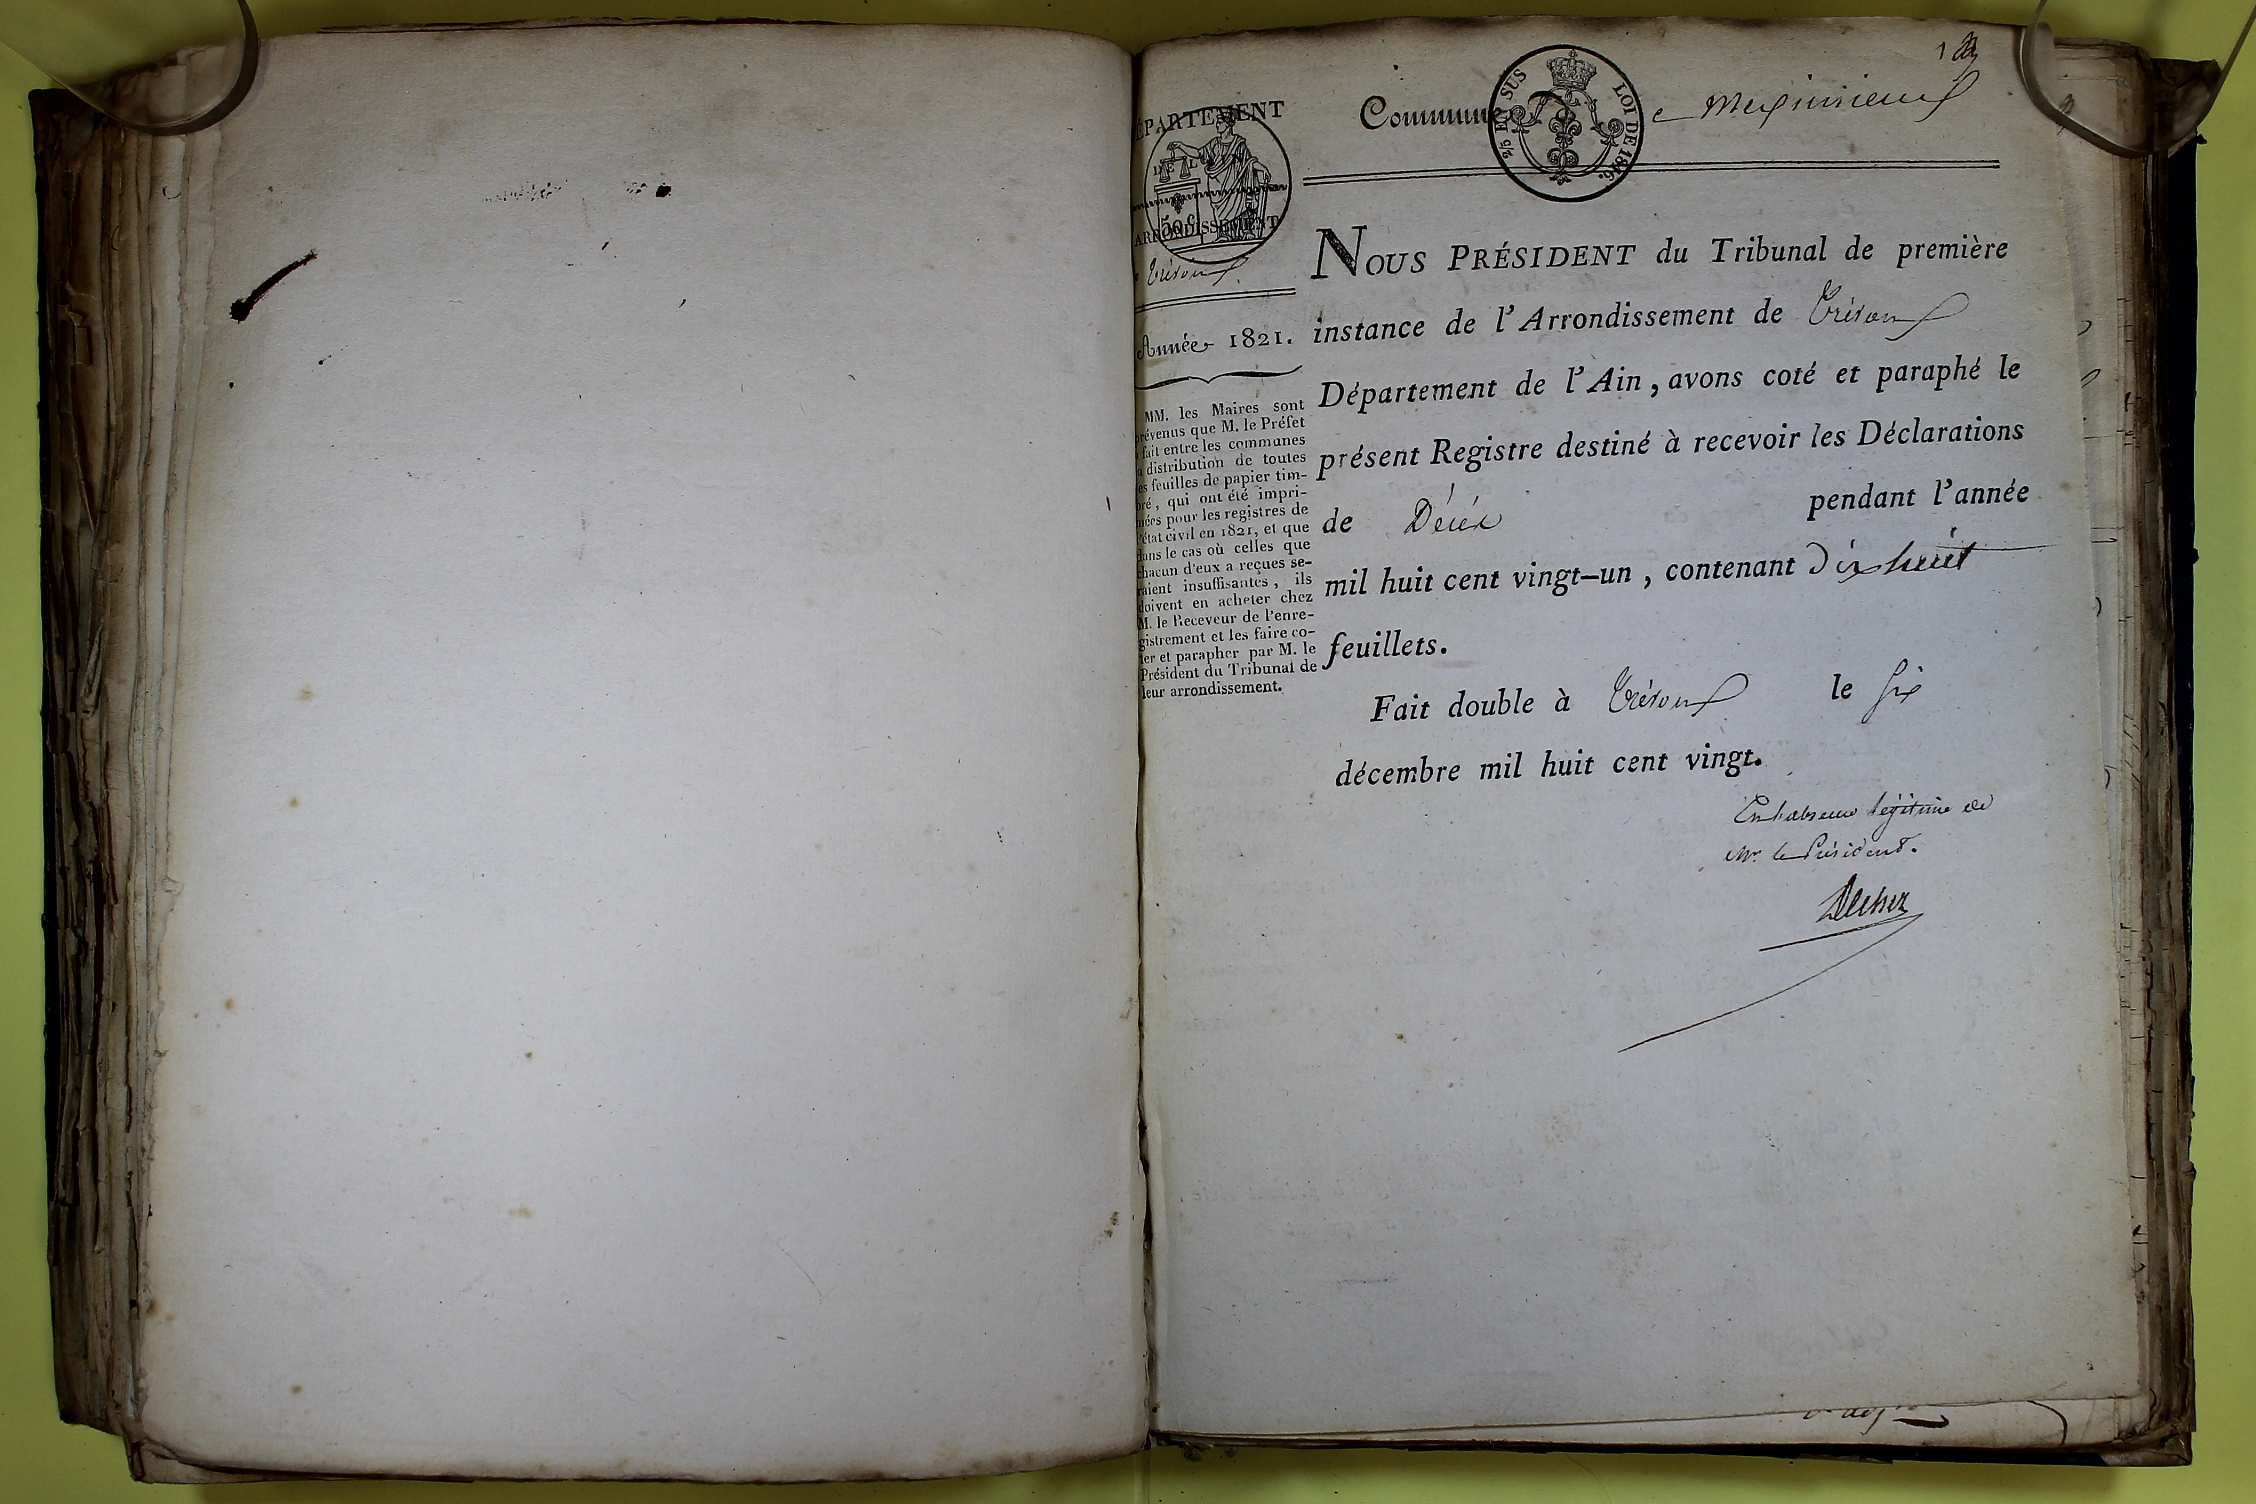 1
Commune de Meximieux
2/5 EN SUS
LOI DE 1816.
DÉPARTEMENT
DE L'AIN
50 c
ARRONDISSEMENT
de Trévoux.
Année 1821.
MM. les Maires sont
prévenus que M. le Préfet
a fait entre les communes
la distribution de toutes
les feuilles de papier tim-
bré, qui ont été impri-
mées pour les registres de
l'état civil en 1821, et que
dans le cas où celles que
chacun d'eux a reçues se-
raient insuffisantes, ils
doivent en acheter chez
M. le Receveur de l'enre-
gistrement et les faire co-
ter et parapher par M. le
Président du Tribunal de
leur arrondissement.
NOUS PRÉSIDENT du Tribunal de première
instance de l'Arrondissement de Trévoux
Département de l'Ain, avons coté et paraphé le
présent Registre destiné à recevoir les Déclarations
de Décès pendant l'année
mil huit cent vingt-un, contenant Dix huit
feuillets.
Fait double à Trévoux le six
décembre mil huit cent vingt.
En l'absence légitime de
Mr. le Président.